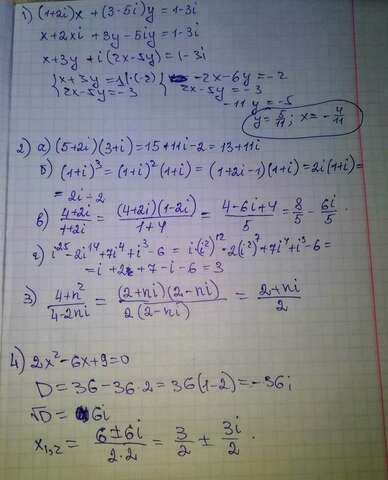 1) (1+2i)x + (3-5i)y = 1-3i
x+2xi +3y-5iy=1-3i
x+3y+i(2x-5y)=1-3i
{x+3y=1|·(-2) {-2x-6y=-2
{2x-5y=-3 2x-5y=-3
-11y=-5
y=5/11; x=-4/11
2) а) (5+2i)(3+i)=15+11i-2=13+11i
б) (1+i)³=(1+i)²(1+i)=(1+2i-1)(1+i)=2i(1+i)=
=2i-2
в) (4+2i)/(1+2i) = ((4+2i)(1-2i))/(1+4) = (4-6i+4)/5 = 8/5 - 6i/5.
г) i²⁵-2i¹⁴+7i⁴+i³-6= i·(i²)¹²-2(i²)⁷+7i⁴+i³-6=
=i+2+7-i-6=3
3) (4+n²)/(4-2ni) = ((2+ni)(2-ni))/(2(2-ni)) = (2+ni)/2
4) 2x²-6x+9=0
D=36-36·2=36(1-2)=-36i
√D= 6i
x₁,₂= (6±6i)/(2·2) = 3/2 ± 3i/2.